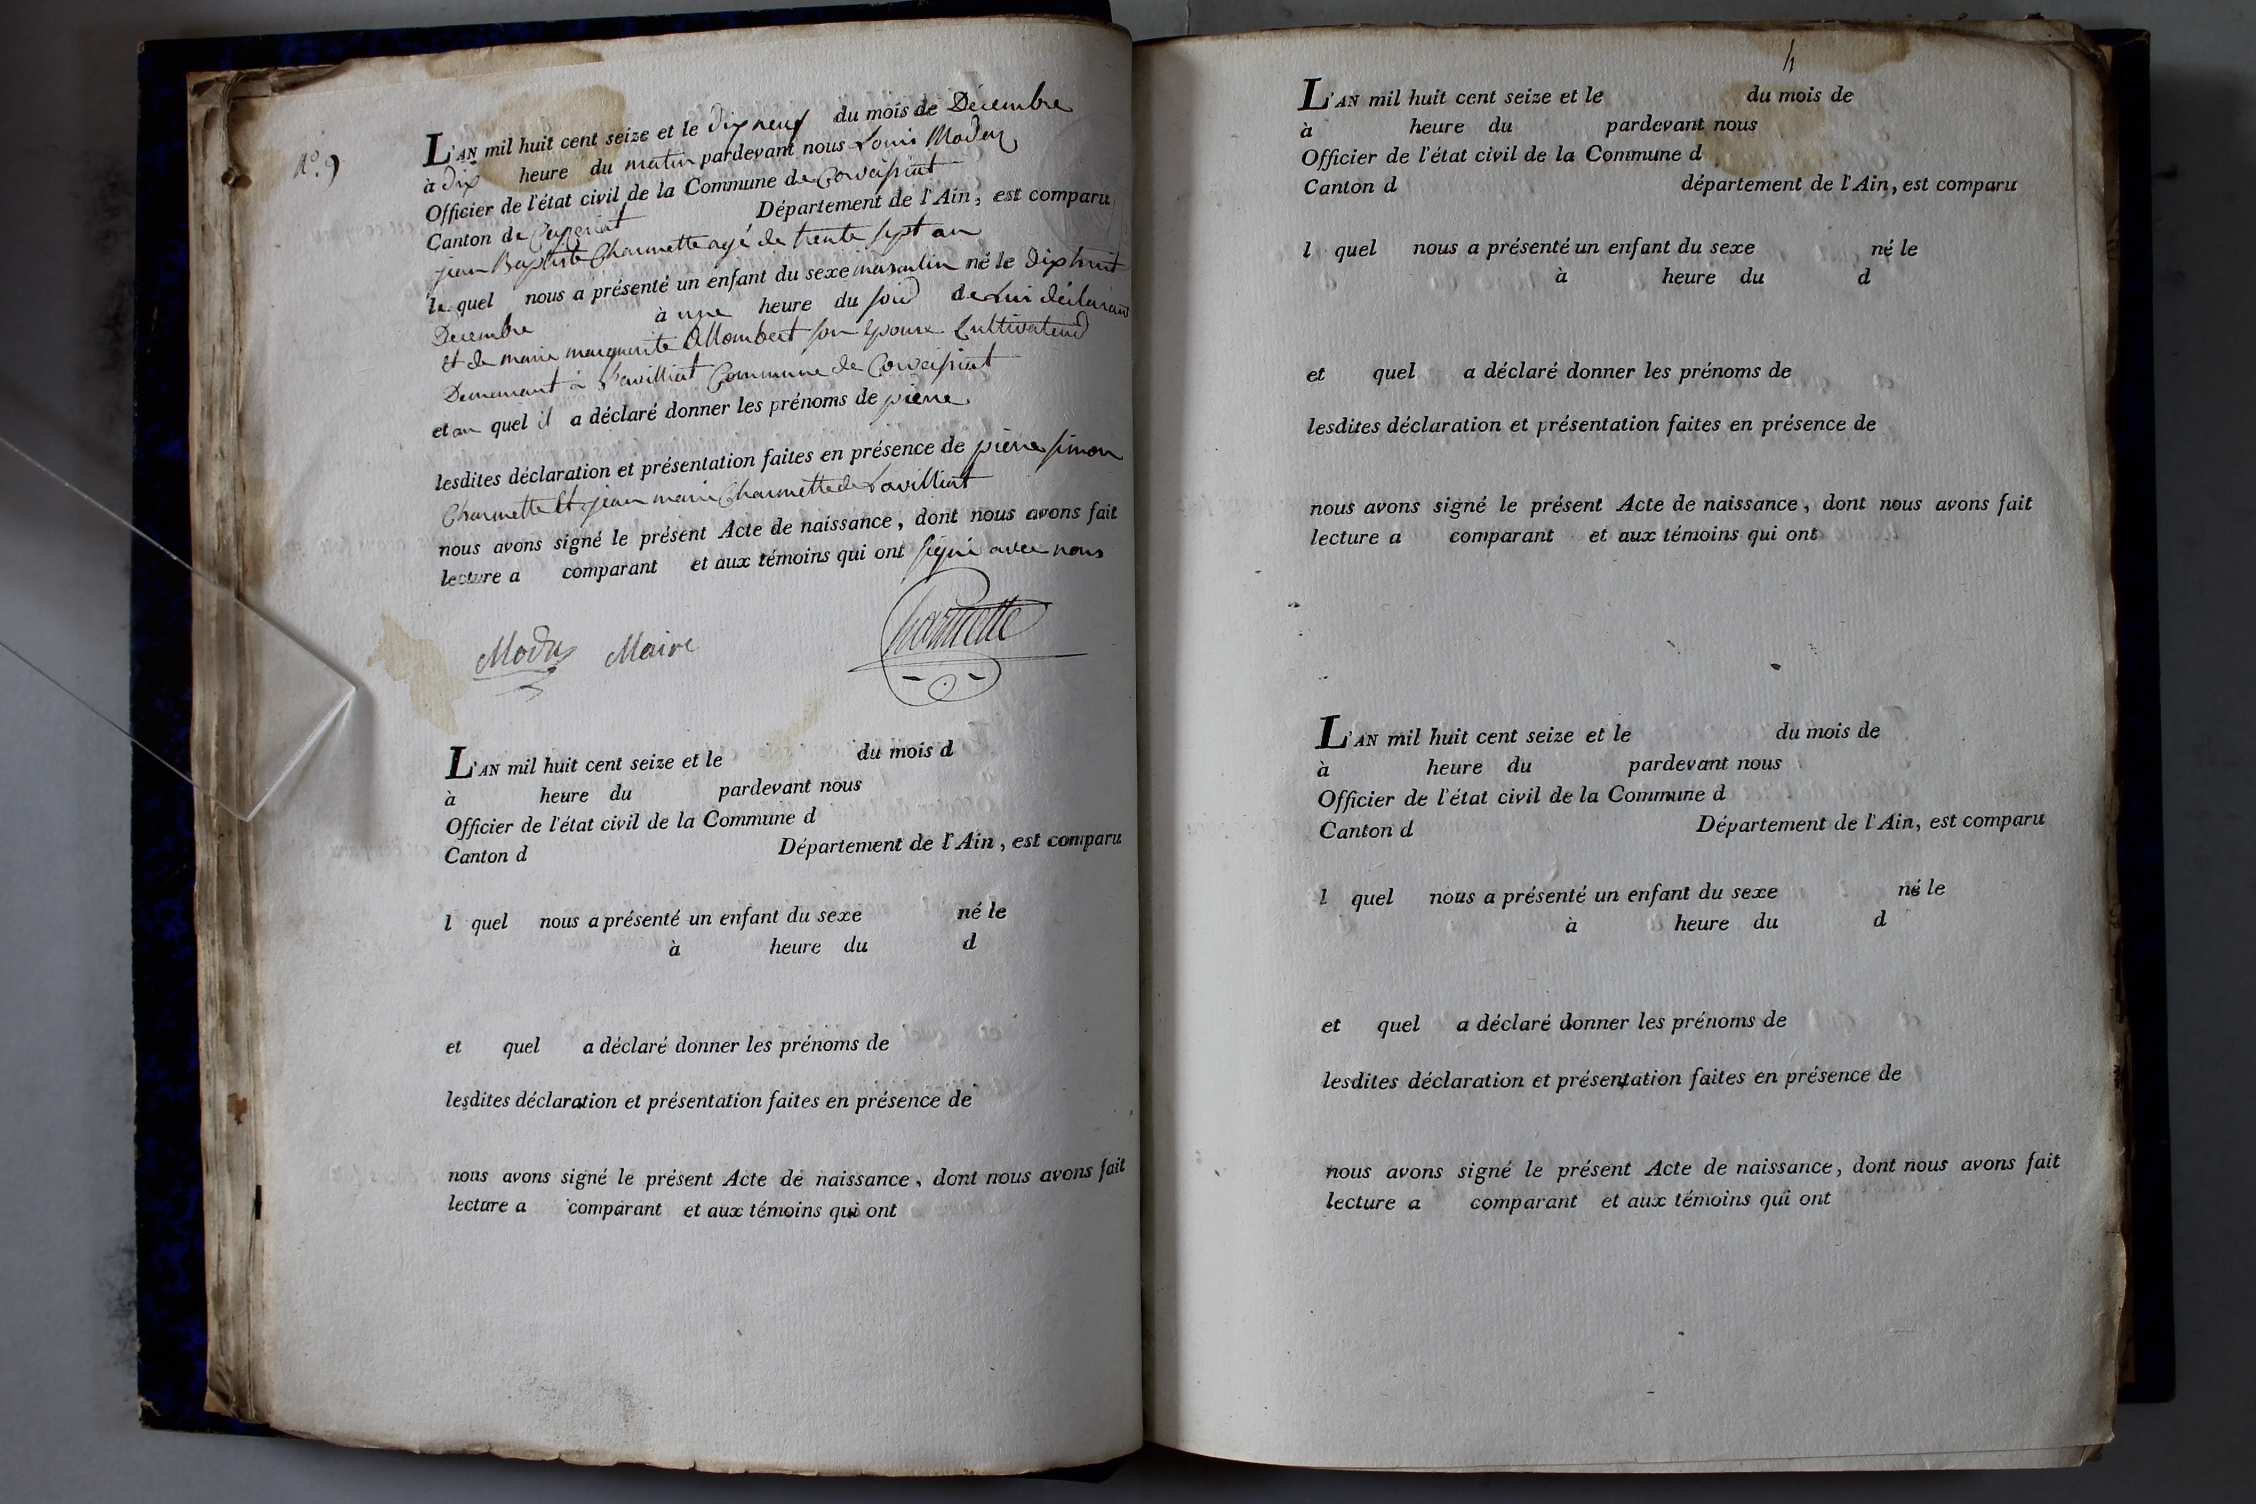 N.° 9
L'AN mil huit cent seize et le dix neuf du mois de Décembre
à dix heure du matin pardevant nous Louis
Officier de l'état civil de la Commune de Corveissiat
Canton de Ceyzeriat Département de l'Ain, est comparu
jean Baptiste Charmette agé de trente sept an
le quel nous a présenté un enfant du sexe masculin né le dix huit
Decembre à une heure du soir de Lui déclarant
et de marie marguerite son epouse Cultivateur
Demeurant à Commune de Corveissiat
et au quel il a déclaré donner les prénoms de pierre
lesdites déclaration et présentation faites en présence de pierre simon
Charmette Et jean marie Charmette de
nous avons signé le présent Acte de naissance, dont nous avons fait
lecture a comparant et aux témoins qui ont signé avec nous
Maire Charmette
L'AN mil huit cent seize et le du mois d
à heure du pardevant nous
Officier de l'état civil de la Commune d
Canton d Département de l'Ain, est comparu
l quel nous a présenté un enfant du sexe né le
à heure du d
et quel a déclaré donner les prénoms de
lesdites déclaration et présentation faites en présence de
nous avons signé le présent Acte de naissance, dont nous avons fait
lecture a comparant et aux témoins qui ont
4
L'AN mil huit cent seize et le du mois de
à heure du pardevant nous
Officier de l'état civil de la Commune d
Canton d département de l'Ain, est comparu
l quel nous a présenté un enfant du sexe né le
à heure du d
et quel a déclaré donner les prénoms de
lesdites déclaration et présentation faites en présence de
nous avons signé le présent Acte de naissance, dont nous avons fait
lecture a comparant et aux témoins qui ont
L'AN mil huit cent seize et le du mois de
à heure du pardevant nous
Officier de l'état civil de la Commune d
Canton d Département de l'Ain, est comparu
l quel nous a présenté un enfant du sexe né le
à heure du d
et quel a déclaré donner les prénoms de
lesdites déclaration et présentation faites en présence de
nous avons signé le présent Acte de naissance, dont nous avons fait
lecture a comparant et aux témoins qui ont